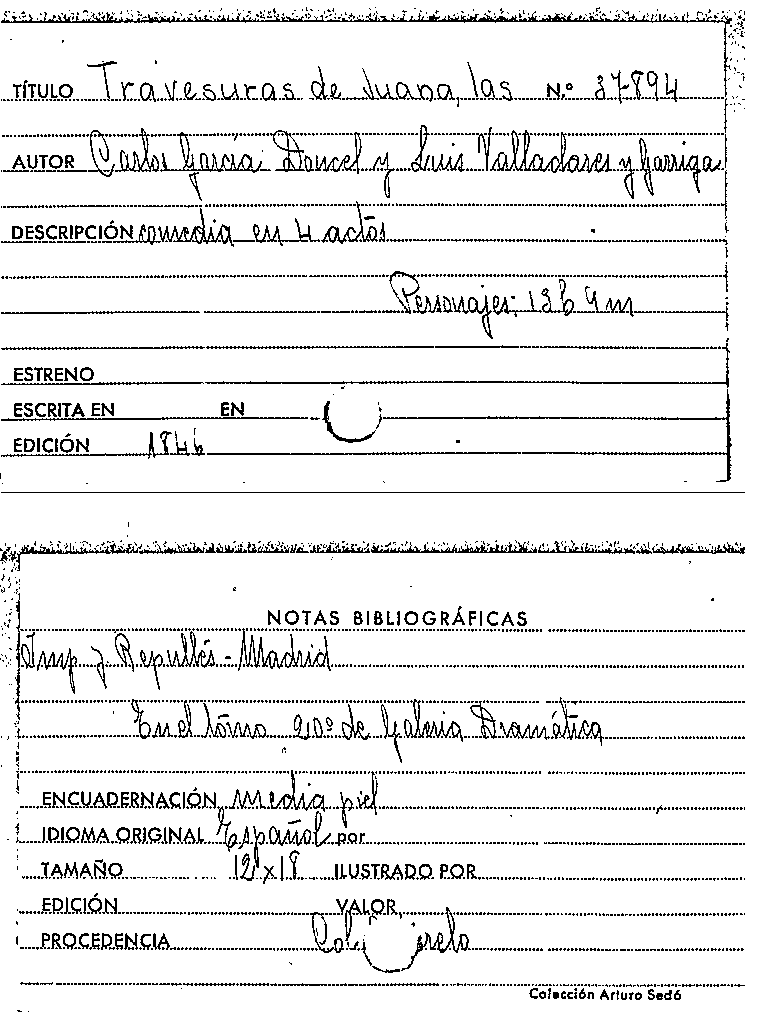 TÍTULO Travesuras de Juana, las N.º 37-894
AUTOR Carlos García Doncel y Luis Valladares y Garriga
DESCRIPCIÓN comedia en 4 actos
Personajes: 13 h 4 m
ESTRENO
ESCRITA EN EN
EDICIÓN 1846
NOTAS BIBLIOGRÁFICAS
Imp. J. Repullés - Madrid
En el tomo de Galeria Dramática
ENCUADERNACIÓN media piel
IDIOMA ORIGINAL Español por
TAMAÑO 12 x 18 ILUSTRADO POR
EDICIÓN VALOR
PROCEDENCIA
Colección Arturo Sedó